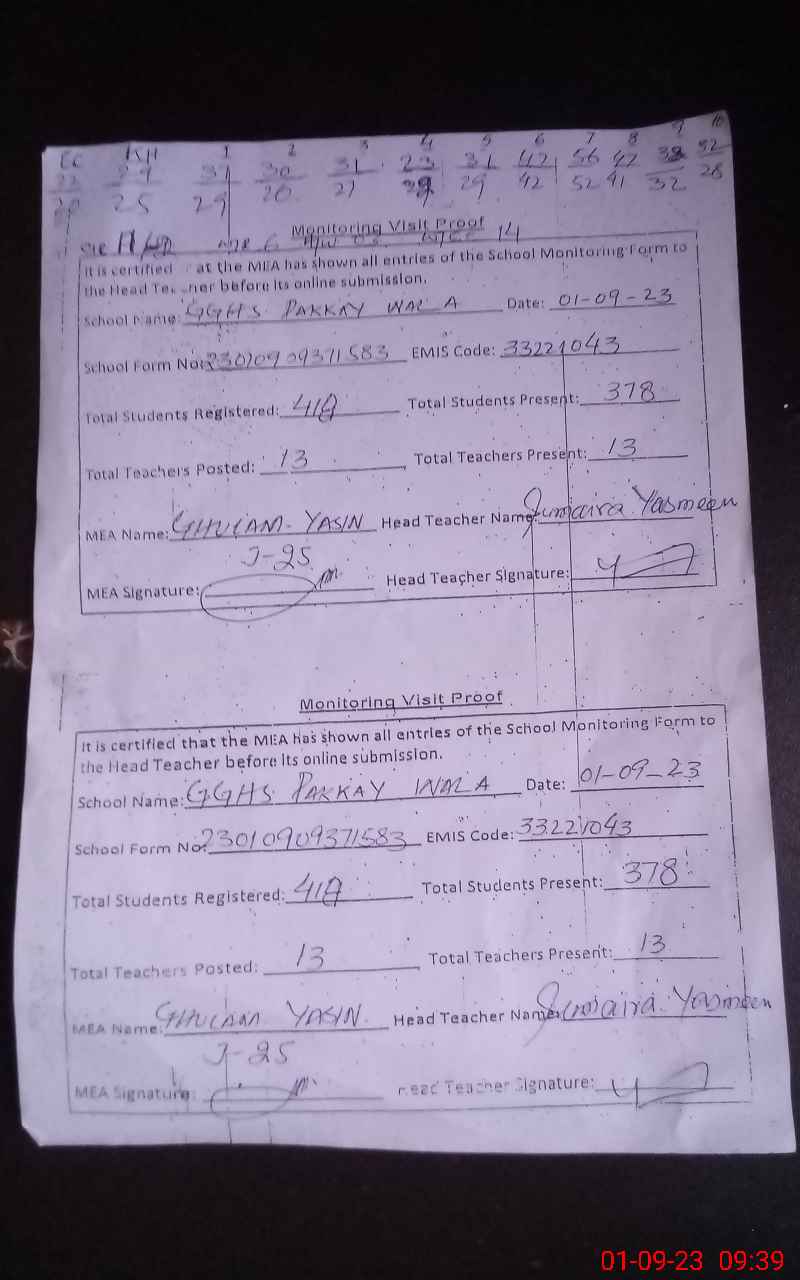 EC KH 1 2 3 4 5 6 7 8 9 10
31 30 31 23 31 42 56 42 38 52
25 29 20 27 29 42 52 41 32 28
Monitoring Visit Proof 14
It is certified at the MEA has shown all entries of the School Monitoring Form to
the Head before its online submission.
School Name: GGHS PAKKAY WALA Date: 01-09-23
School Form No: 23010909371583 EMIS Code: 33221043
Total Students Registered: Total Students Present: 378
Total Teachers Posted: 13 Total Teachers Present: 13
MEA Name: GHULAM YASIN Head Teacher Name: Sumaira Yasmeen
J-25
MEA Signature: Head Teacher Signature:
Monitoring Visit Proof
It is certified that the MEA has shown all entries of the School Monitoring Form to
the Head Teacher before its online submission.
School Name: GGHS PAKKAY WALA Date: 01-09-23
School Form No: 23010909371583 EMIS Code: 33221043
Total Students Registered: Total Students Present: 378
Total Teachers Posted: 13 Total Teachers Present: 13
MEA Name: GHULAM YASIN Head Teacher Name: Sumaira Yasmeen
J-25
MEA Signature: Head Teacher Signature:
01-09-23 09:39